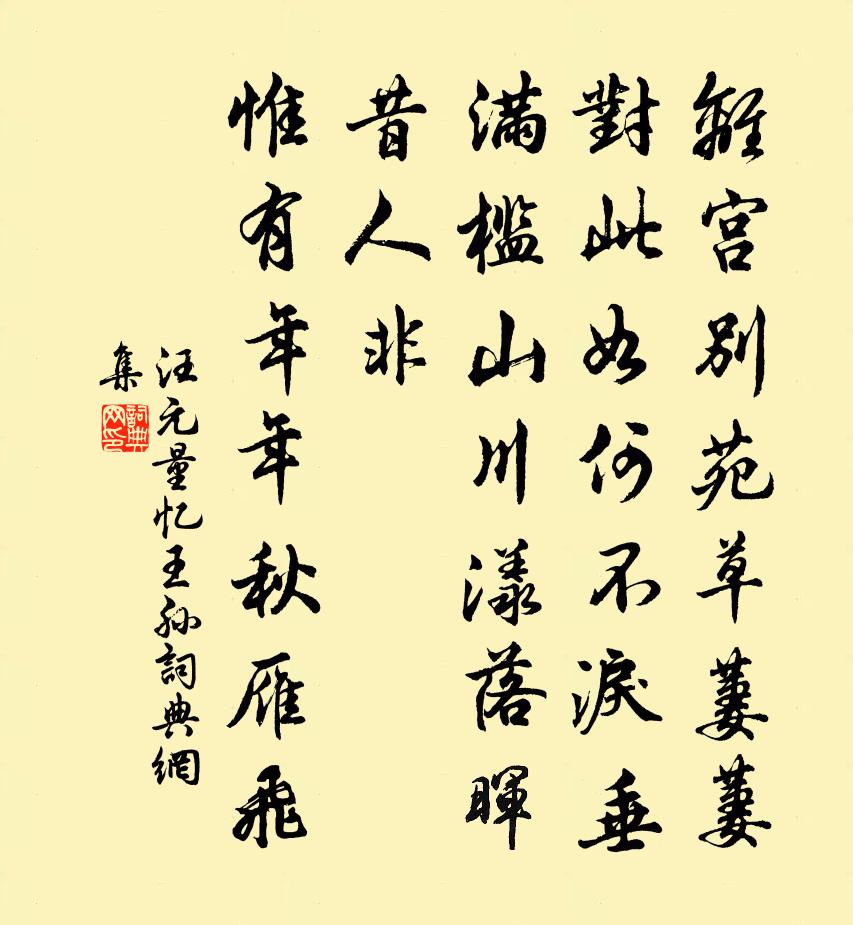 離宮別苑草萋萋
對此如何不淚垂
滿檻山川漾落暉
昔人非
惟有年年秋雁飛
汪元量忆王孙詞典網
集
詞典
网印